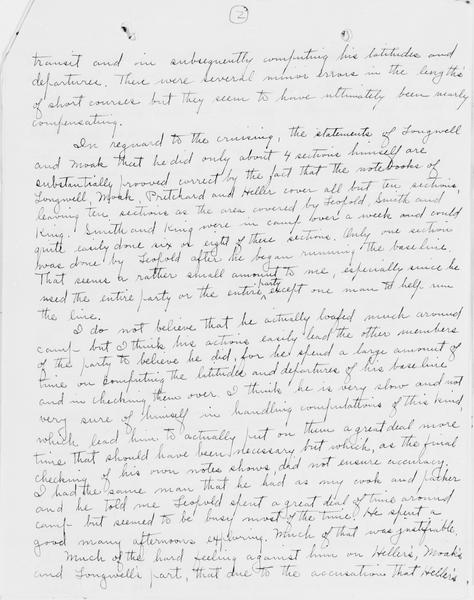 2
transit and in subsequently computing his latitudes and
departures. There were several minor errors in the lengths
of short courses but they seem to have ultimately been nearly
compensating.
In reguard to the cruising, the statements of Longwell
and Moak that he did only about 4 sections himself are
substantially prooved correct by the fact that the notebooks of
Longwell, Moak, Pritchard and Heller cover all but ten sections,
leaving ten sections as the area covered by Leopold, Smith and
King. Smith and King were in camp over a week and could
quite easily done six or eight of these sections. Only one section
was done by Leopold after he began running the base line.
That seems a rather small amount to me, especially since he
used the entire party or the entire party except one man to help run
the line.
I do not believe that he actually loafed much around
camp but I think his actions easily lead the other members
of the party to believe he did, for he spend a large amount of
time on computing the latitudes and departures of his base line
and in checking them over. I think he is very slow and not
very sure of himself in handling computations of this kind,
which lead him to actually put on them a great deal more
time that should have been necessary but which, as the final
checking of his own notes shows, did not ensure accuracy.
I had the same man that he had as my cook and packer
and he told me Leopold spent a great deal of time around
camp but seemed to be busy most of the time. He spent a
good many afternoons exploring. Much of that was justifiable.
Much of the hard feeling against him on Heller's, Moak's
and Longwell's part, that due to the accusation that Heller's,